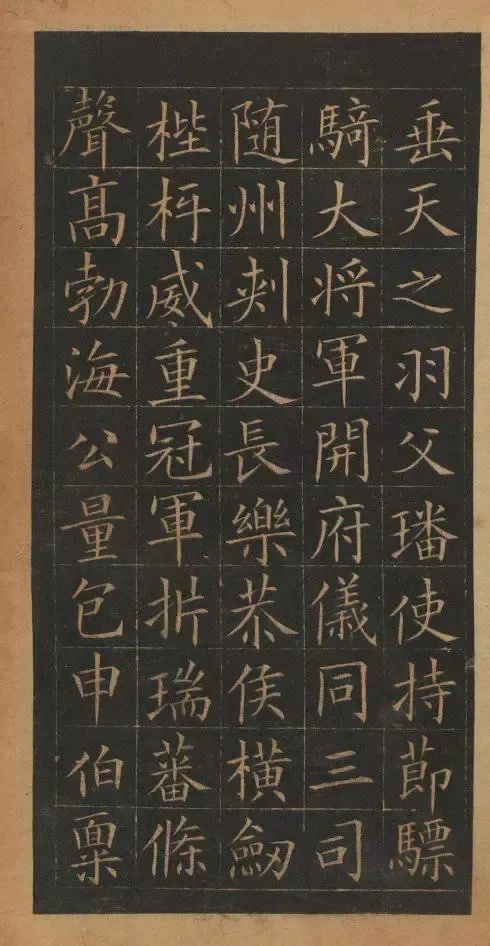 垂天之羽父璠使持節驃
騎大将軍開府儀同三司
随州刾史長樂恭侯橫劒
梐枑威重冠軍析瑞蕃條
聲髙勃海公量包申伯稟